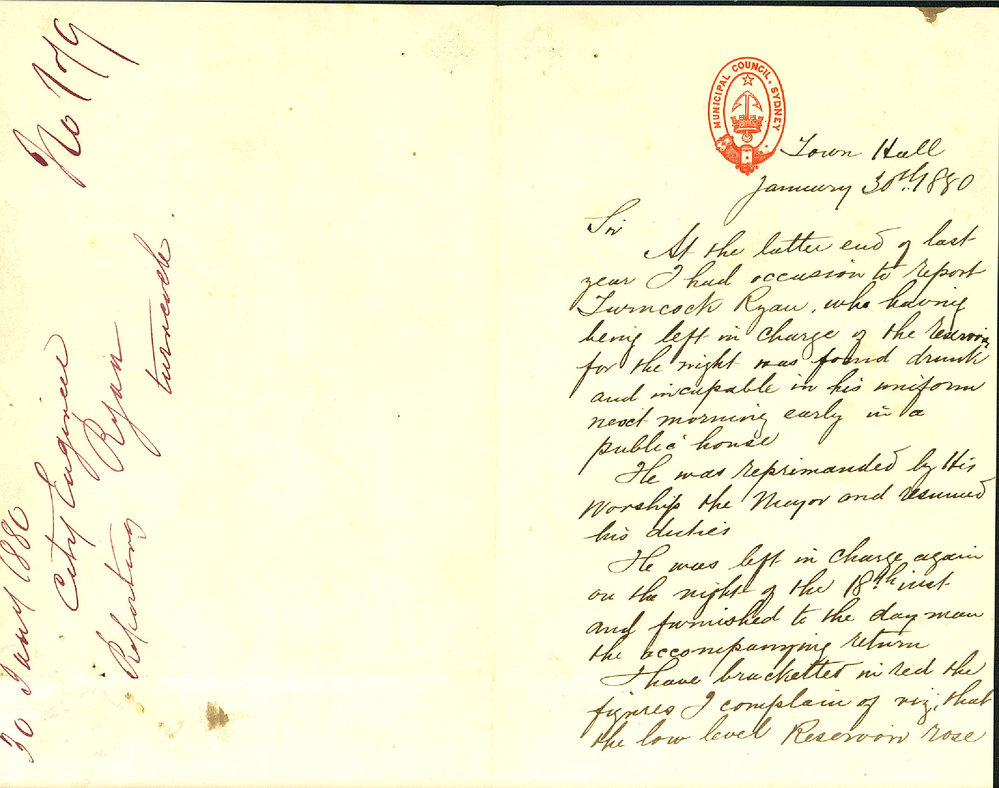 No 179
30 Jany 1880
City Engineer
Reporting Ryan
turncock
MUNICIPAL COUNCIL, SYDNEY
Town Hall
January 30th 1880
Sir
At the latter end of last
year I had occasion to report
Turncock Ryan, who having
being left in charge of the reservoir
for the night was found drunk
and incapable in his uniform
next morning early in a
public house
He was reprimanded by His
Worship the Mayor and resumed
his duties
He was left in charge again
on the night of the 18th inst
and furnished to the day man
the accompanying return
I have bracketted in red the
figures I complain of viz, that
the low level Reservoir rose